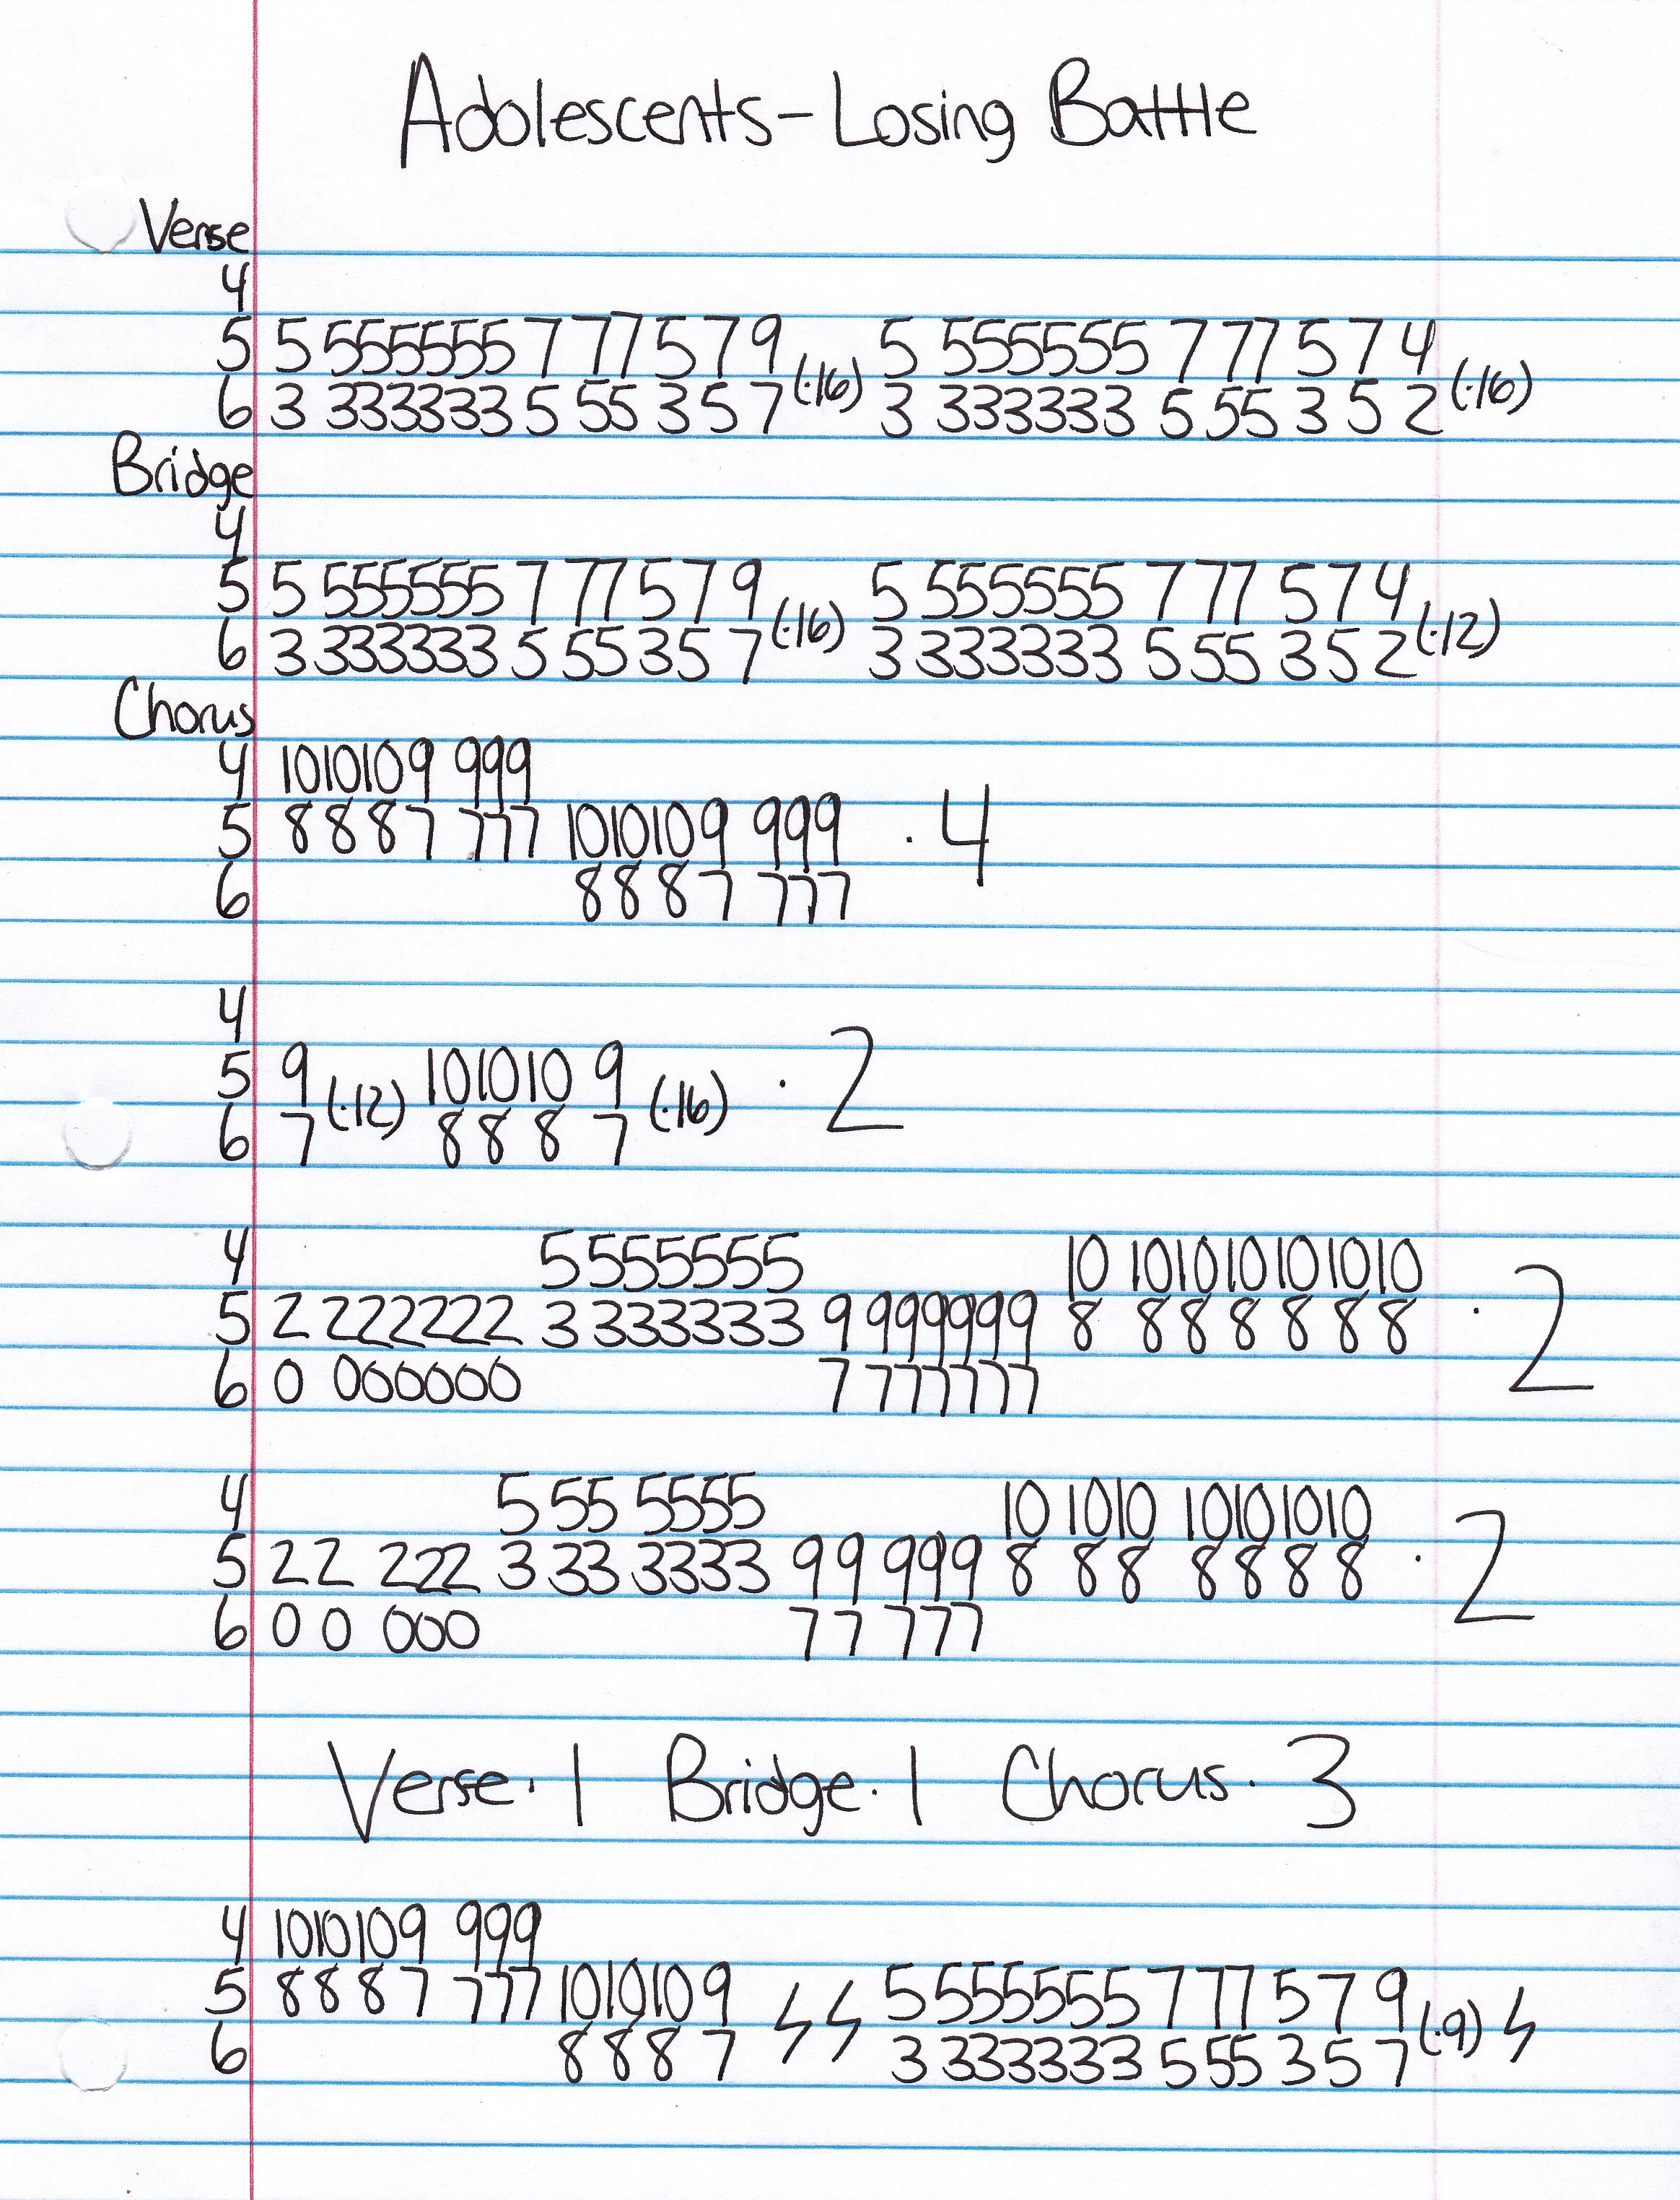 Adolescents - Losing Battle
Verse
4
5 5 555555 7 77 5 7 9 (·16) 5 555555 7 77 5 7 4 (·16)
6 3 333333 5 55 3 5 7 3 333333 5 55 3 5 2
Bridge
4
5 5 555555 7 77 5 7 9 (·16) 5 555555 7 77 5 7 4 (·12)
6 3 333333 5 55 3 5 7 3 333333 5 55 3 5 2
Chorus
4 10 10 10 9 999
5 8 8 8 7 777 10 10 10 9 999 · 4
6 8 8 8 7 777
4
5 9 (·12) 10 10 10 9 (·16) · 2
6 7 8 8 8 7
4 5 555555 10 10 10 10 10 10 10
5 2 222222 3 333333 9 999999 8 8 8 8 8 8 8 · 2
6 0 000000 7 777777
4 5 55 5555 10 10 10 10 10 10 10
5 2 2 222 3 33 3333 9 9 999 8 8 8 8 8 8 8 · 2
6 0 0 000 7 7 777
Verse · 1 Bridge · 1 Chorus · 3
4 10 10 10 9 999
5 8 8 8 7 777 10 10 10 9 5 555555 7 77 5 7 9 (·9)
6 8 8 8 7 3 333333 5 55 3 5 7